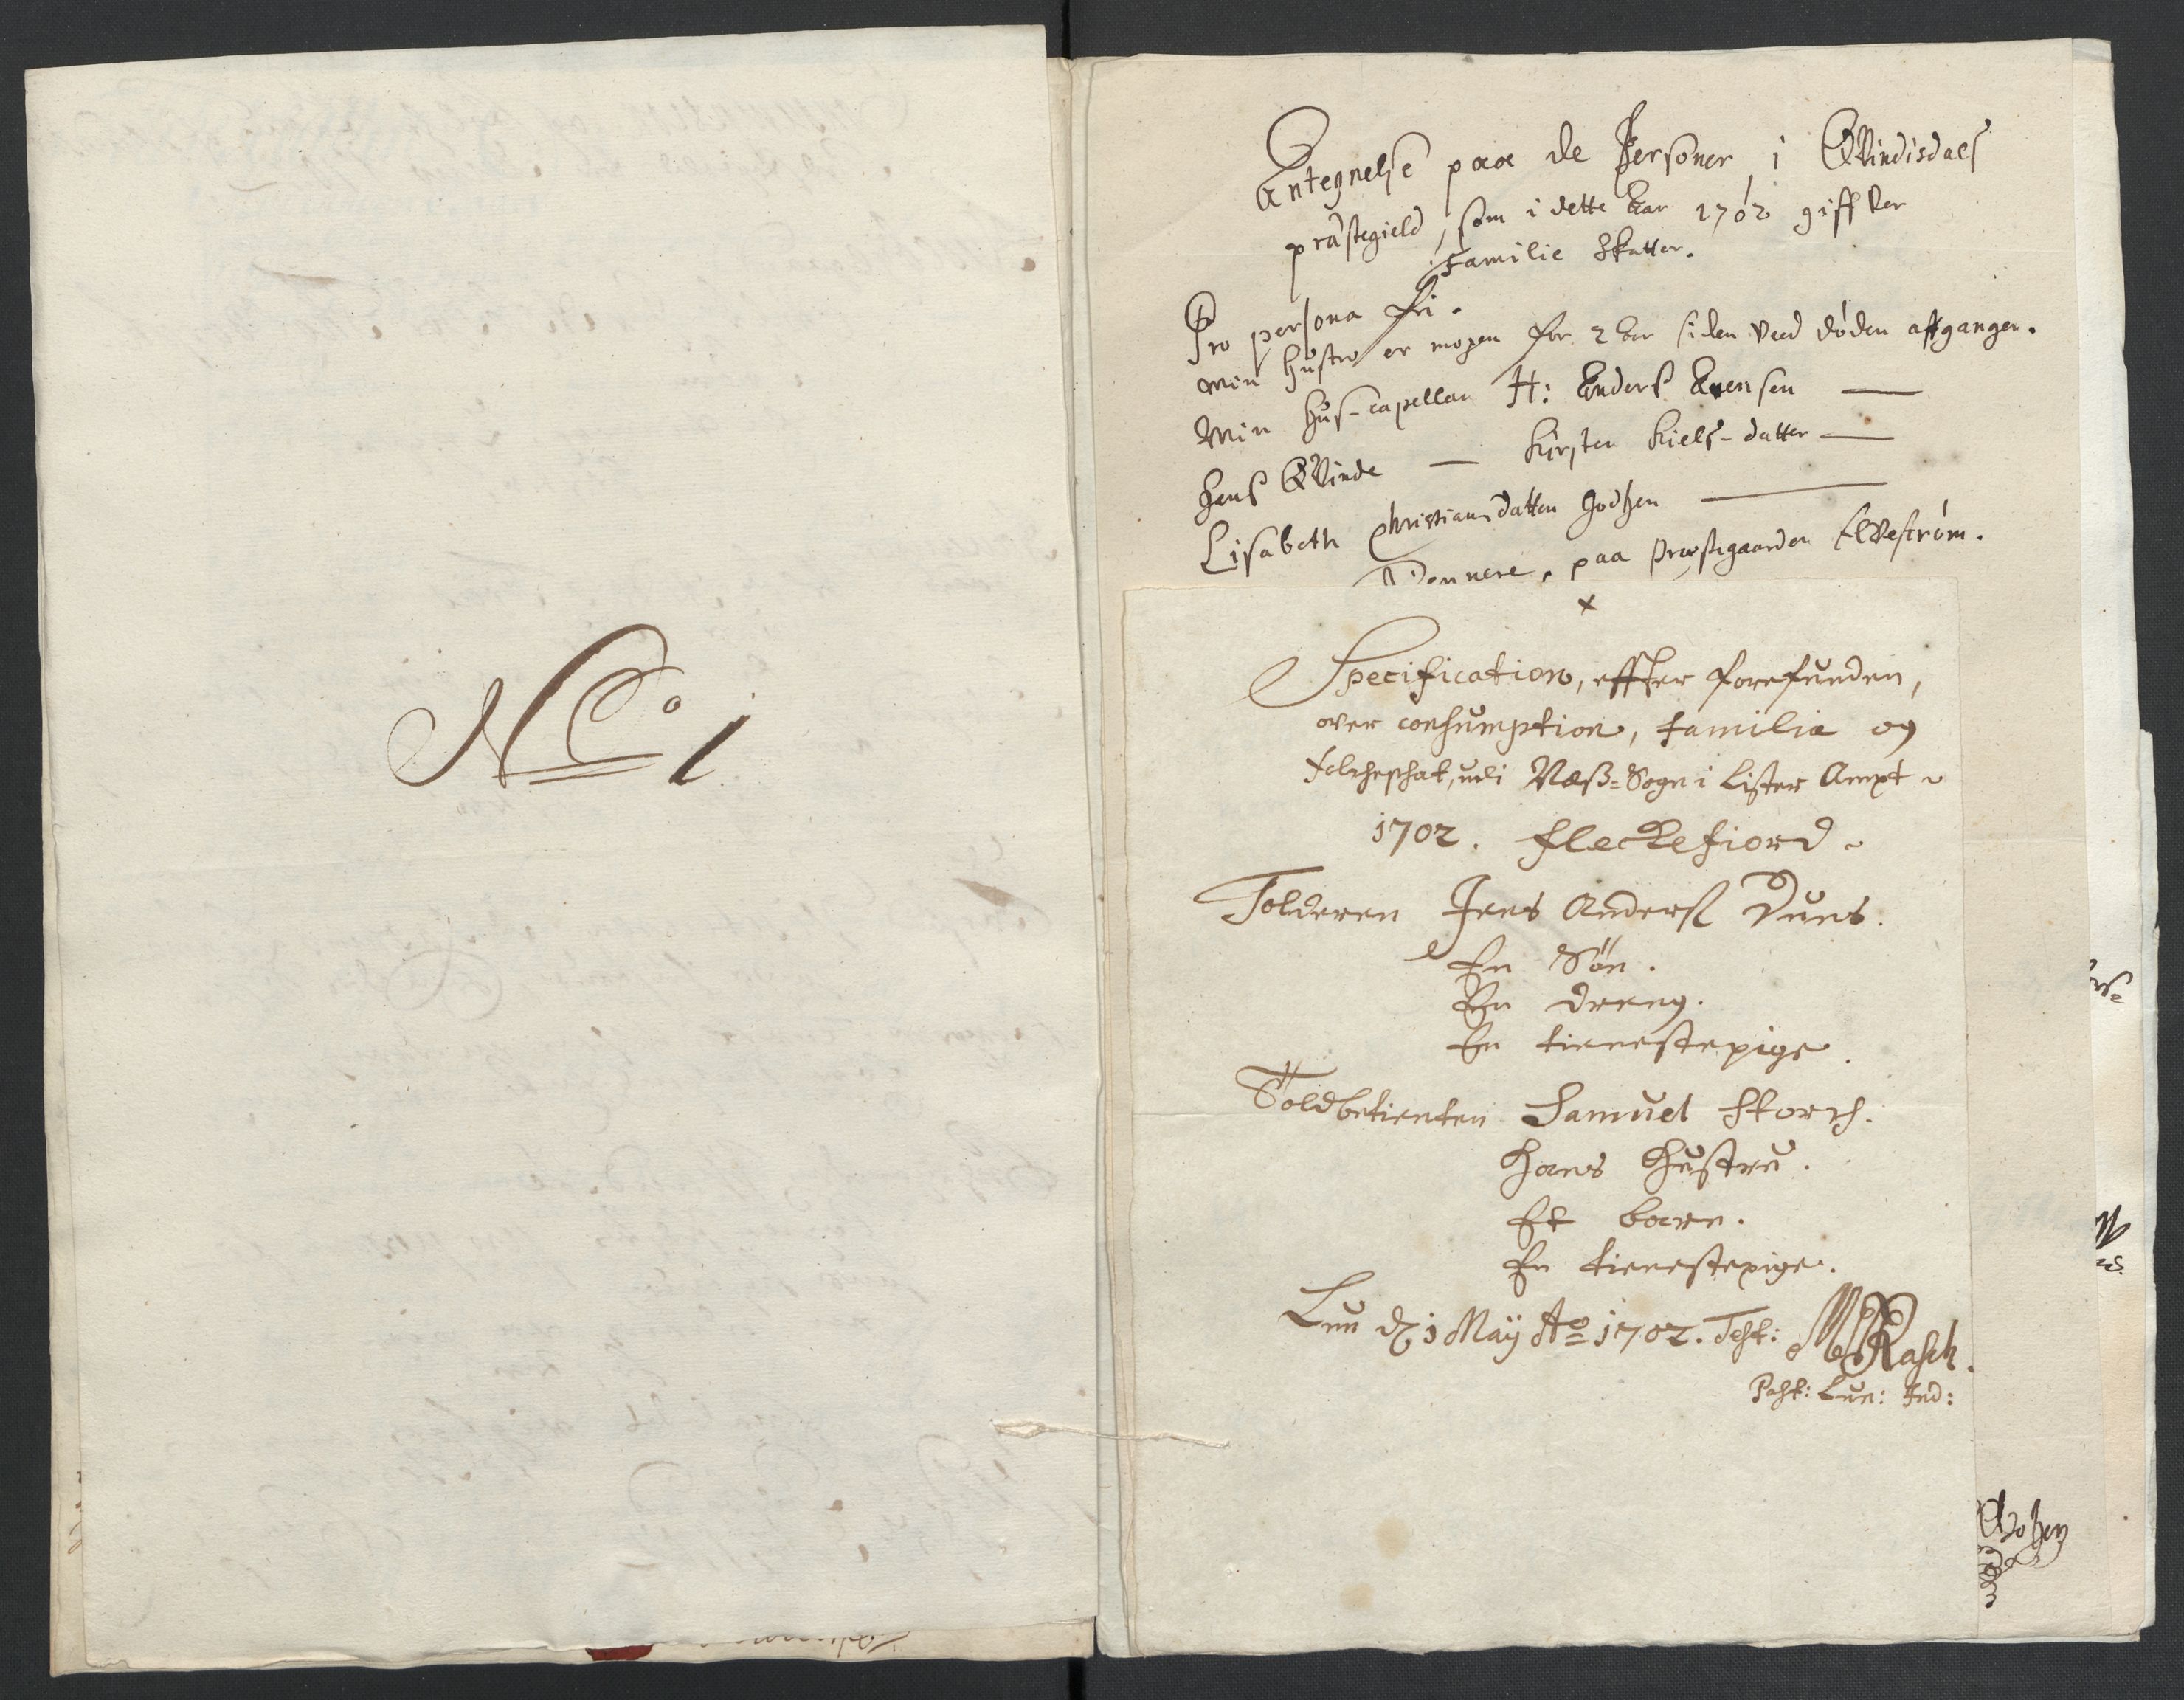 No 1
Antegnelse paa de Personer i Qvindisdals
præstegield, som i dette Aar 1702 giffver
Familie Skatter.
Pro persona fri.
Min Hustro er mogen for 2 Aar siden ved døden affgangen.
Min Huus-capellan H: Anders Evensen
Hans Qvinde Kirsten Niels-datter
Lisabeth Christiansdatter
paa Præstegaarden
x
Specification, effter forefunden,
over consumption, familie og
folcheschat, udi Næss-Sogn i Lister Ampt
1702. Fleckefiord
Tolderen Jens Anders Duus.
En Søn.
En dreng.
En tienestepige.
Toldbetienten Samuel Storch.
Hans Hustru.
Et barn.
En tienestepige.
Lun d. 1 Maÿ Ao 1702. Test: Rasch.
Past: Lun: Ind: